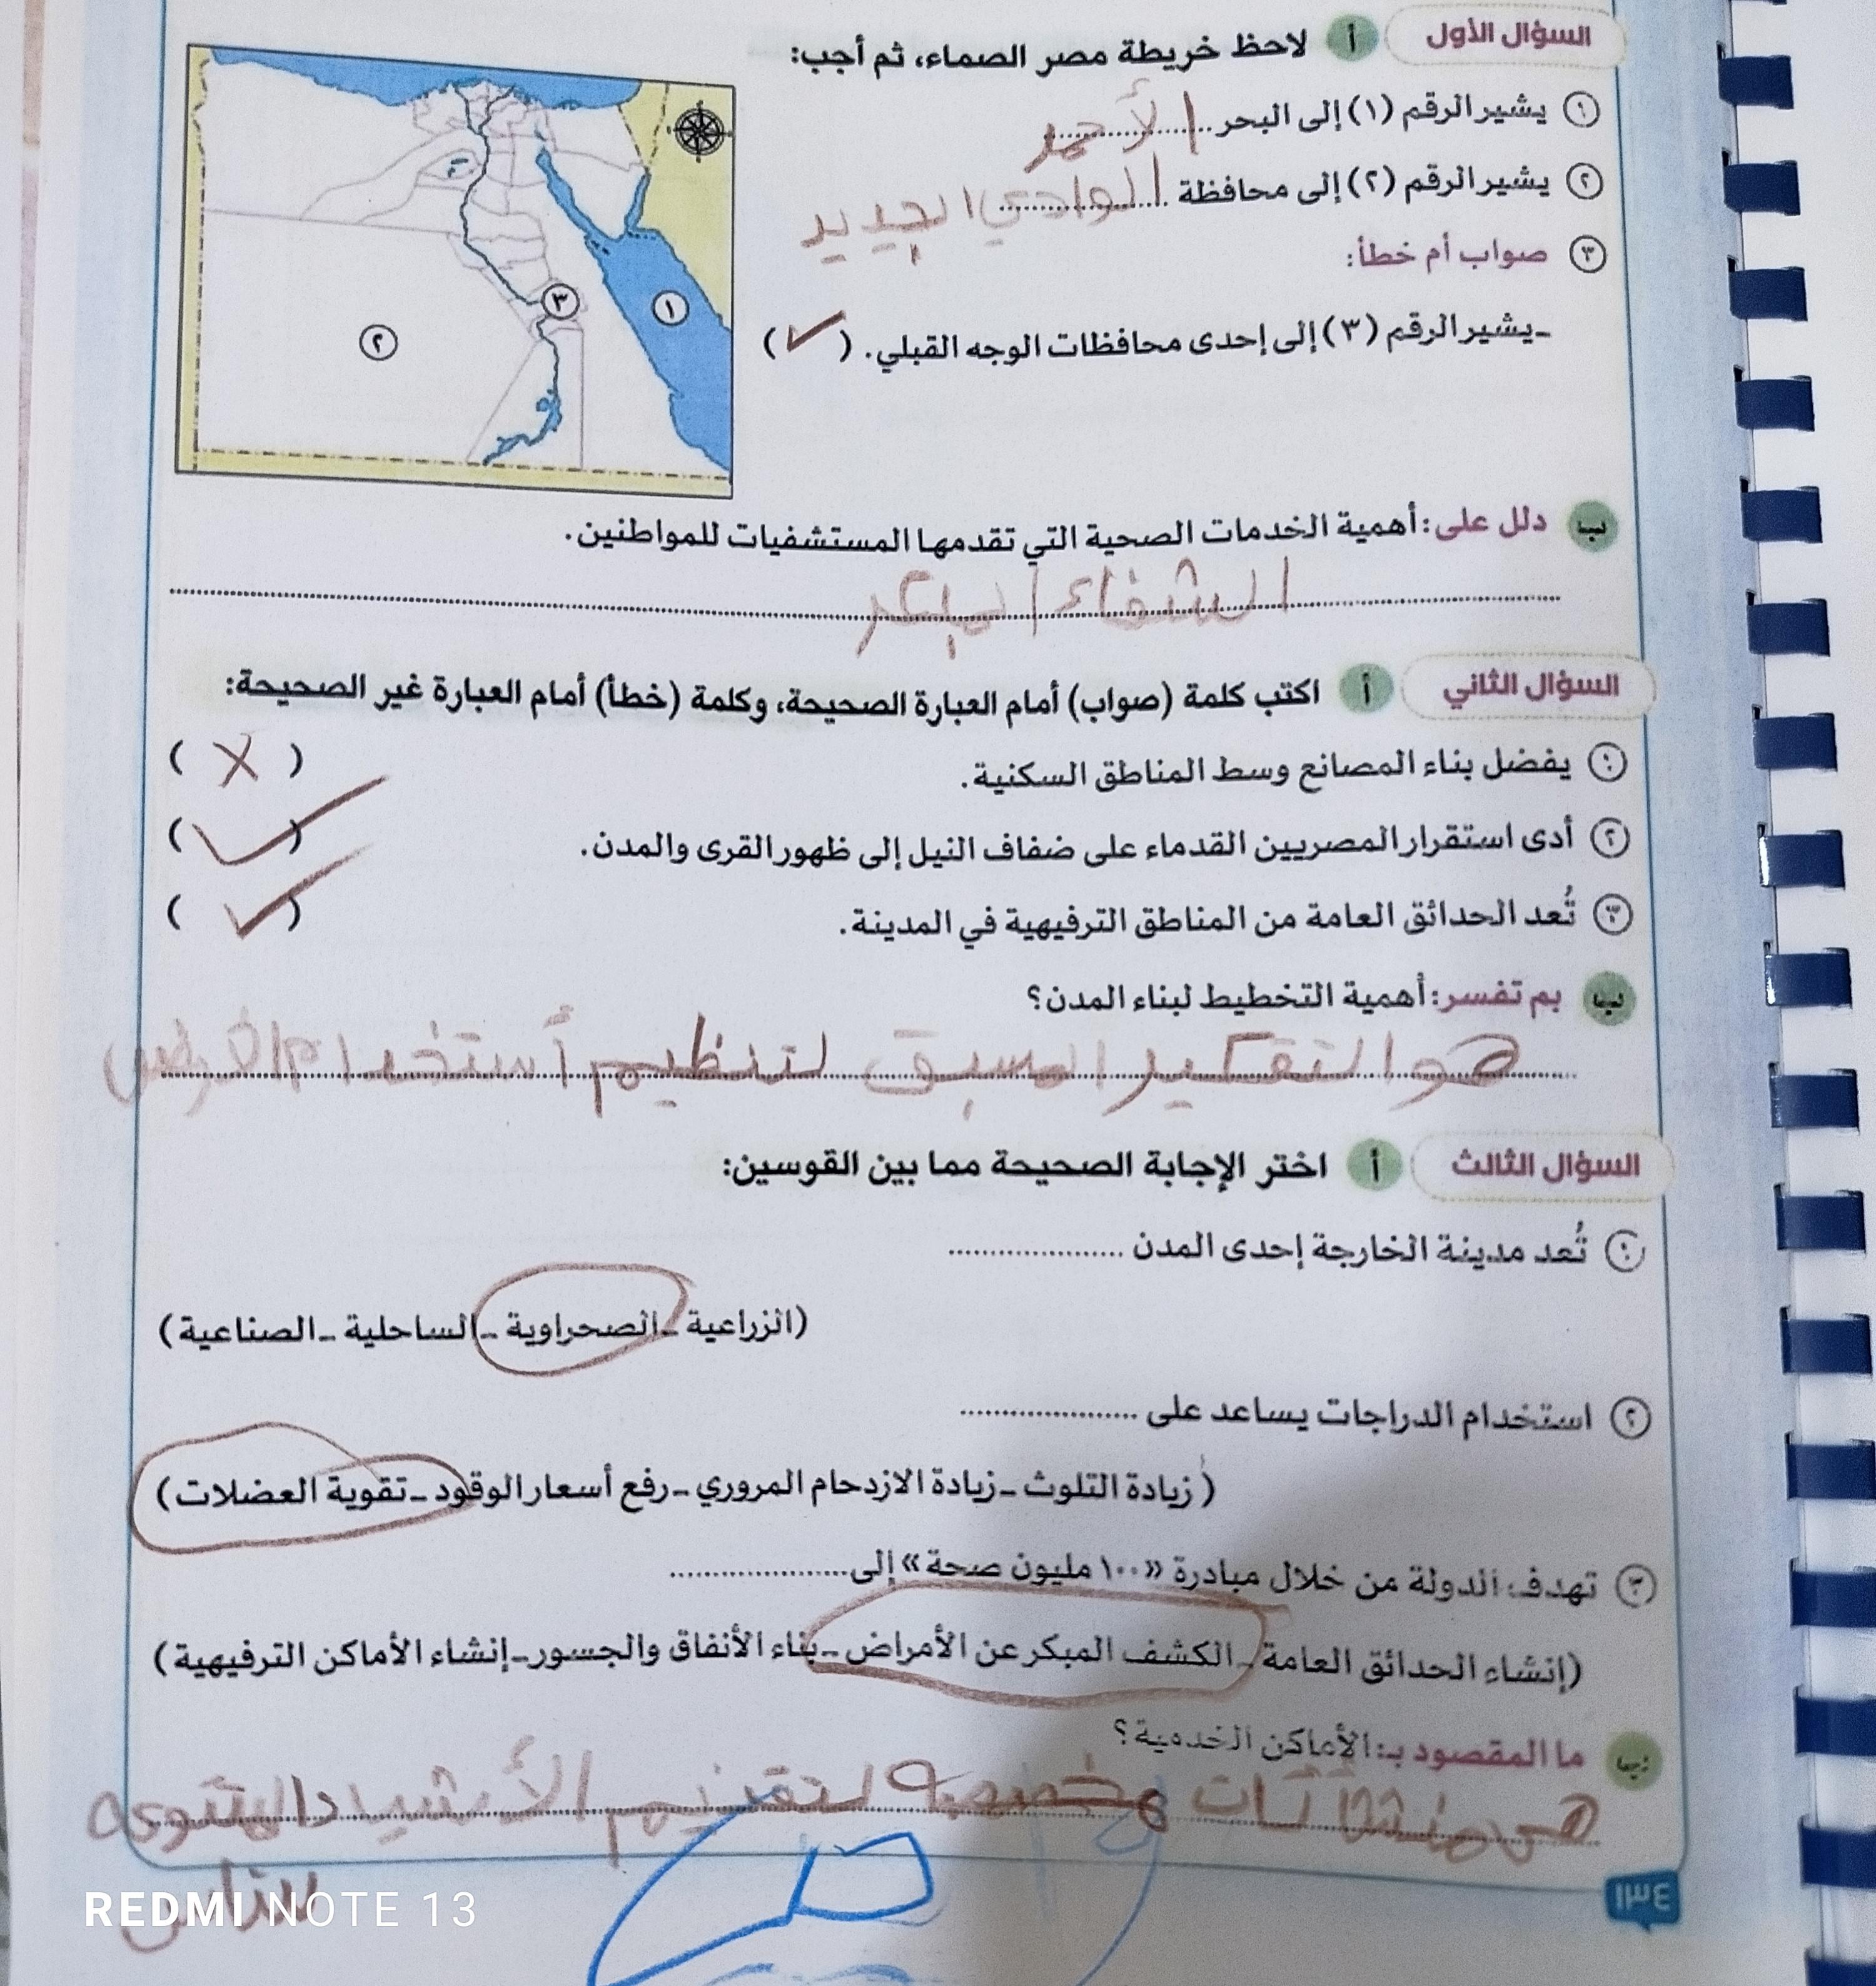 السؤال الأول أ لاحظ خريطة مصر الصماء، ثم أجب:
١ يشير الرقم (١) إلى البحر .......... الأحمر
٢ يشير الرقم (٢) إلى محافظة .......... الوادي الجديد
٣ صواب أم خطأ:
ـ يشير الرقم (٣) إلى إحدى محافظات الوجه القبلي. ( ✓ )
١
٢
٣
ب دلل على: أهمية الخدمات الصحية التي تقدمها المستشفيات للمواطنين.
الشفاء المبكر
السؤال الثاني أ اكتب كلمة (صواب) أمام العبارة الصحيحة، وكلمة (خطأ) أمام العبارة غير الصحيحة:
١ يفضل بناء المصانع وسط المناطق السكنية. ( X )
٢ أدى استقرار المصريين القدماء على ضفاف النيل إلى ظهور القرى والمدن. ( ✓ )
٣ تُعد الحدائق العامة من المناطق الترفيهية في المدينة. ( ✓ )
ب بم تفسر: أهمية التخطيط لبناء المدن؟
هو التفكير المسبق لتنظيم أستخدام الأرض
السؤال الثالث أ اختر الإجابة الصحيحة مما بين القوسين:
١ تُعد مدينة الخارجة إحدى المدن ..........
(الزراعية ـ الصحراوية ـ الساحلية ـ الصناعية)
٢ استخدام الدراجات يساعد على ..........
(زيادة التلوث ـ زيادة الازدحام المروري ـ رفع أسعار الوقود ـ تقوية العضلات)
٣ تهدف الدولة من خلال مبادرة «١٠٠ مليون صحة» إلى ..........
(إنشاء الحدائق العامة ـ الكشف المبكر عن الأمراض ـ بناء الأنفاق والجسور ـ إنشاء الأماكن الترفيهية)
ب ما المقصود بـ: الأماكن الخدمية؟
لتقديم
١٣٤
REDMI NOTE 13